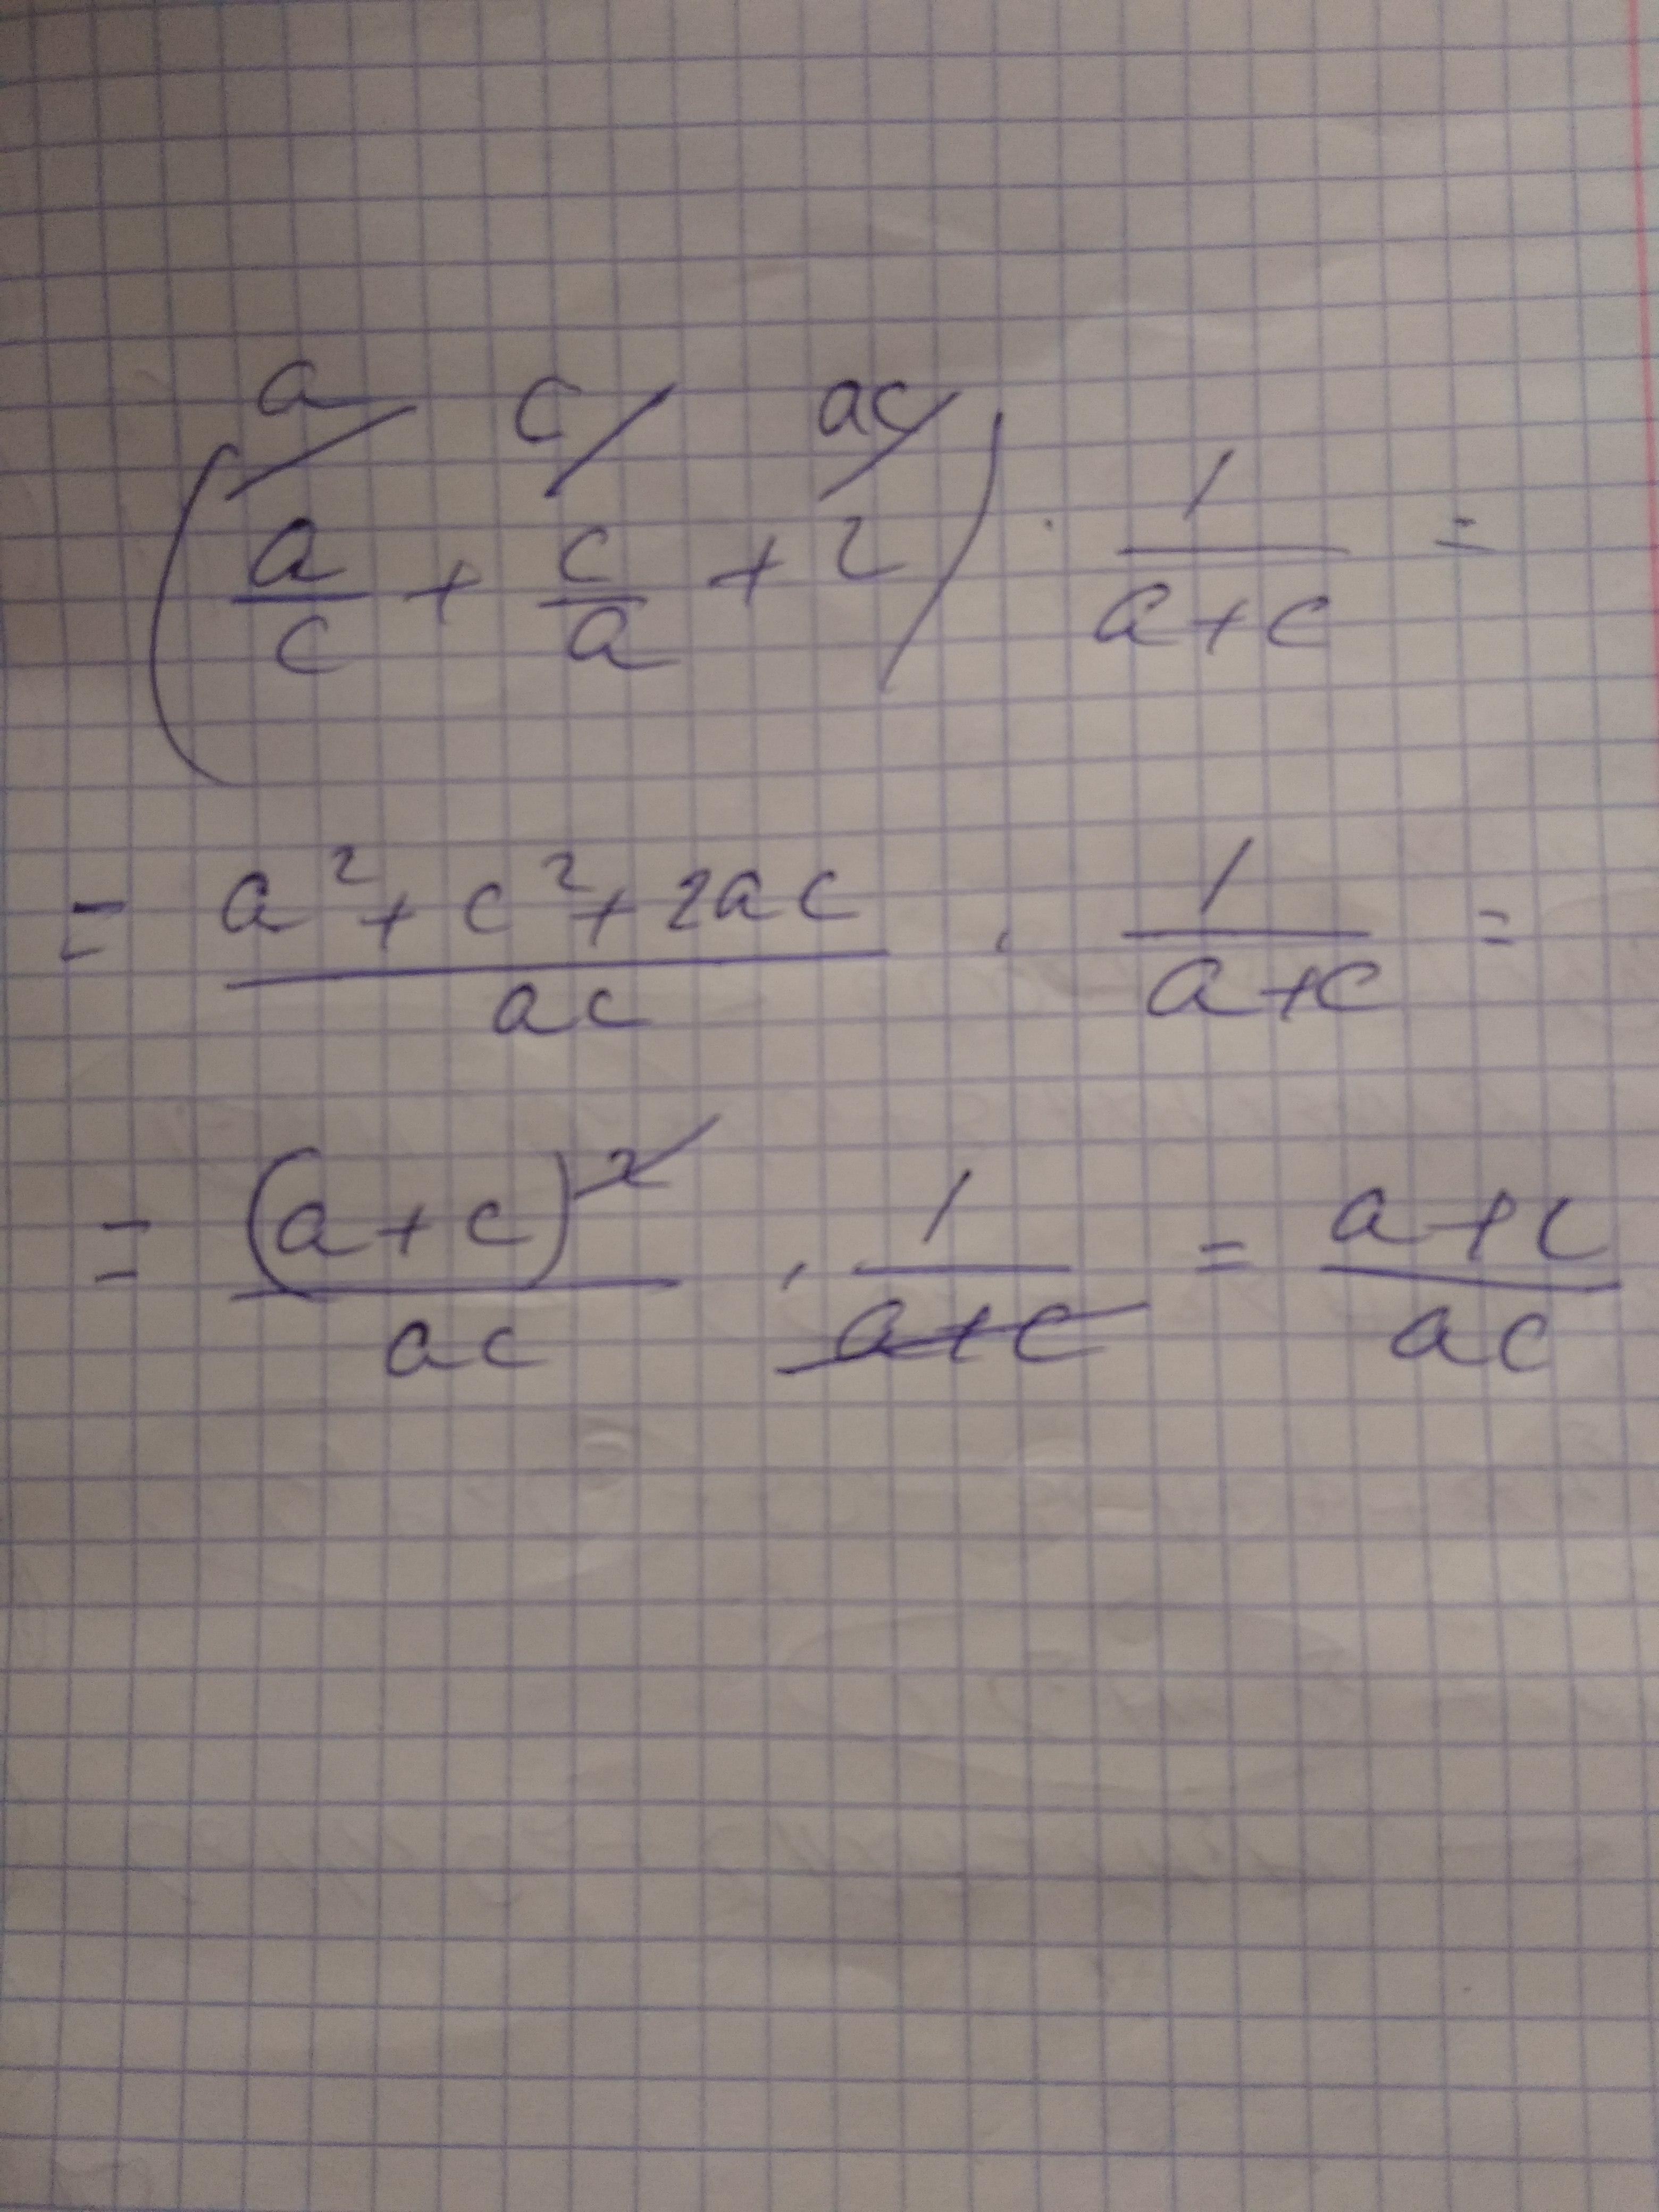 a/ c/ ac/
(a/c + c/a + 2) · 1/(a+c) =
= (a² + c² + 2ac)/(ac) · 1/(a+c) =
= (a+c)²/(ac) · 1/(a+c) = (a+c)/(ac)